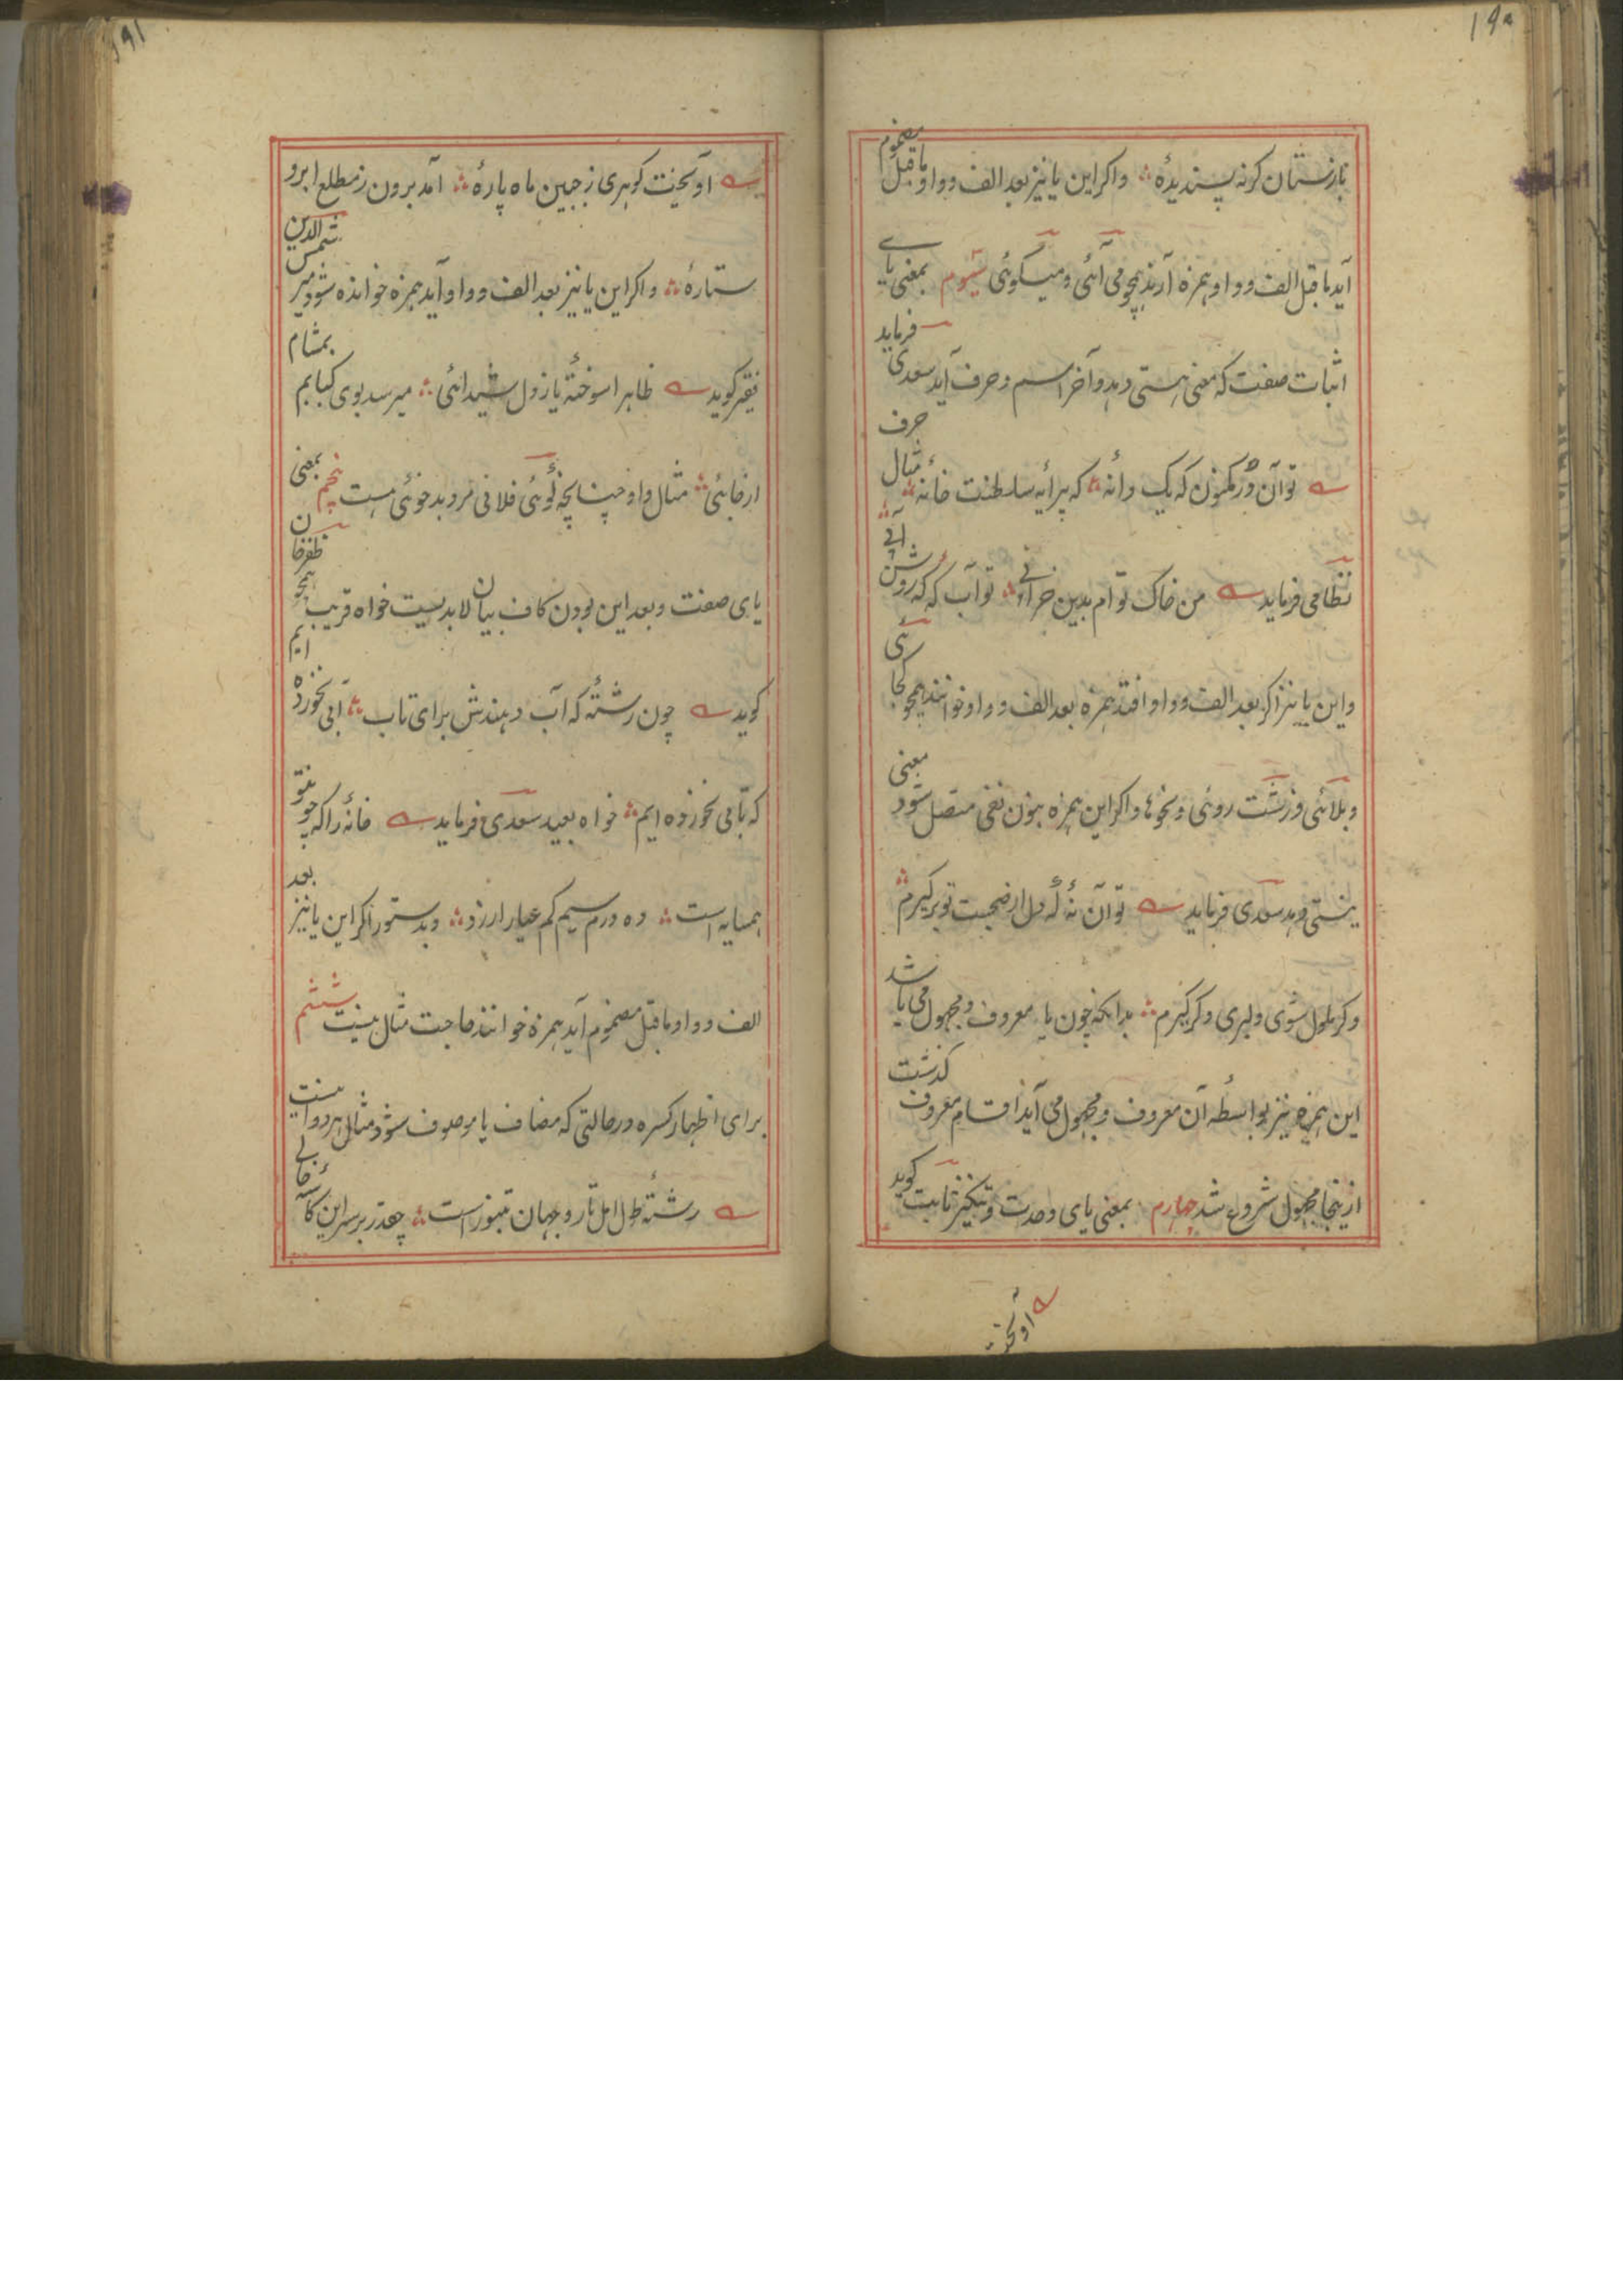 ۱۹۰
بازستان کرنه پسندیدۀ ؞ واکر این یا نیز بعد الف و واو ماقبل مضموم
آید ماقبل الف و واو همزه آرند همچو می آئی و میکوئی سیوم بمعنی یای
اثبات صفت که معنی هستی دهد و آخر اسم و حرف آید سعدی فرماید
تو آن در مکنون که یک دانۀ ؞ که پیرایه سلطنت خانۀ ؞ مثال حرف
نظامی فرماید من خاک توام بدین خرابی ؞ تو آب که که روشن آبی
واین یا نیز اکر بعد الف و واو افتد همزه بعد الف و واو خوانند همچو کجائی
و بلائی و زشت روئی و نحوها و اکر این همزه بنون نفی متصل شود معنی
نیستی دهد سعدی فرماید تو آن نۀ که دل از صحبت تو برکیرم
وکر ملول شوی دلبری دکر کیرم ؞ بدانکه چون یا معروف و مجهول می باشد
این همزه نیز بواسطه آن معروف و مجهول می آید اقسام معروف کذشت
ازینجا مجهول شروع شد چهارم بمعنی یای وحدت و تنکیر ثابت کوید
آویخت
۱۹۱
آویخت کوهری ز جبین ماه پارۀ ؞ آمد برون ز مطلع ابرو
ستارۀ ؞ واکر این یا نیز بعد الف و واو آید همزه خوانده شود میر شمس الدین
فقیر کوید ظاهرا سوختۀ باز دل شیدائی ؞ میرسد بوی کبابم بمشام
از جائی ؞ مثال واو چنانچه کوئی فلانی مرد بدخوئی هست پنجم بمعنی
یای صفت و بعد این بودن کاف بیان لابدیست خواه قریب همچو ظفرخان
کوید چون رشتۀ که آب دهندش برای تاب ؞ آبی نخورده ایم
که تابی نخورده ایم ؞ خواه بعید سعدی فرماید خانۀ را که چو تو
همسایه است ؞ ده درم سیم کم عیار ارزد ؞ و بدستور اکر این یا نیز بعد
الف و واو ماقبل مضموم آید همزه خوانند حاجت مثال نیست ششم
برای اظهار کسره در حالتی که مضاف یا موصوف شود مثال هر دو اینست
رشتۀ طول امل تار و جهان تنبور است ؞ چقدر بر سر این کاسۀ خالی